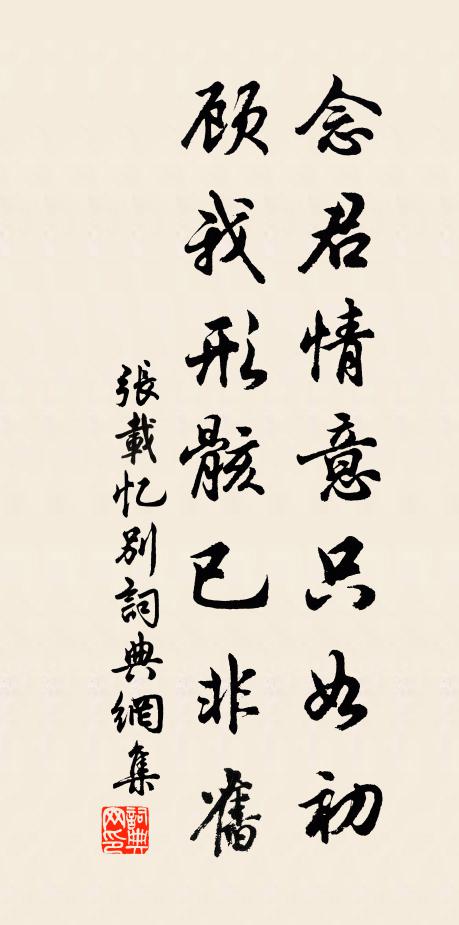 念君情意只如初
顾我形骸已非舊
張載忆别詞典網集
詞典网印